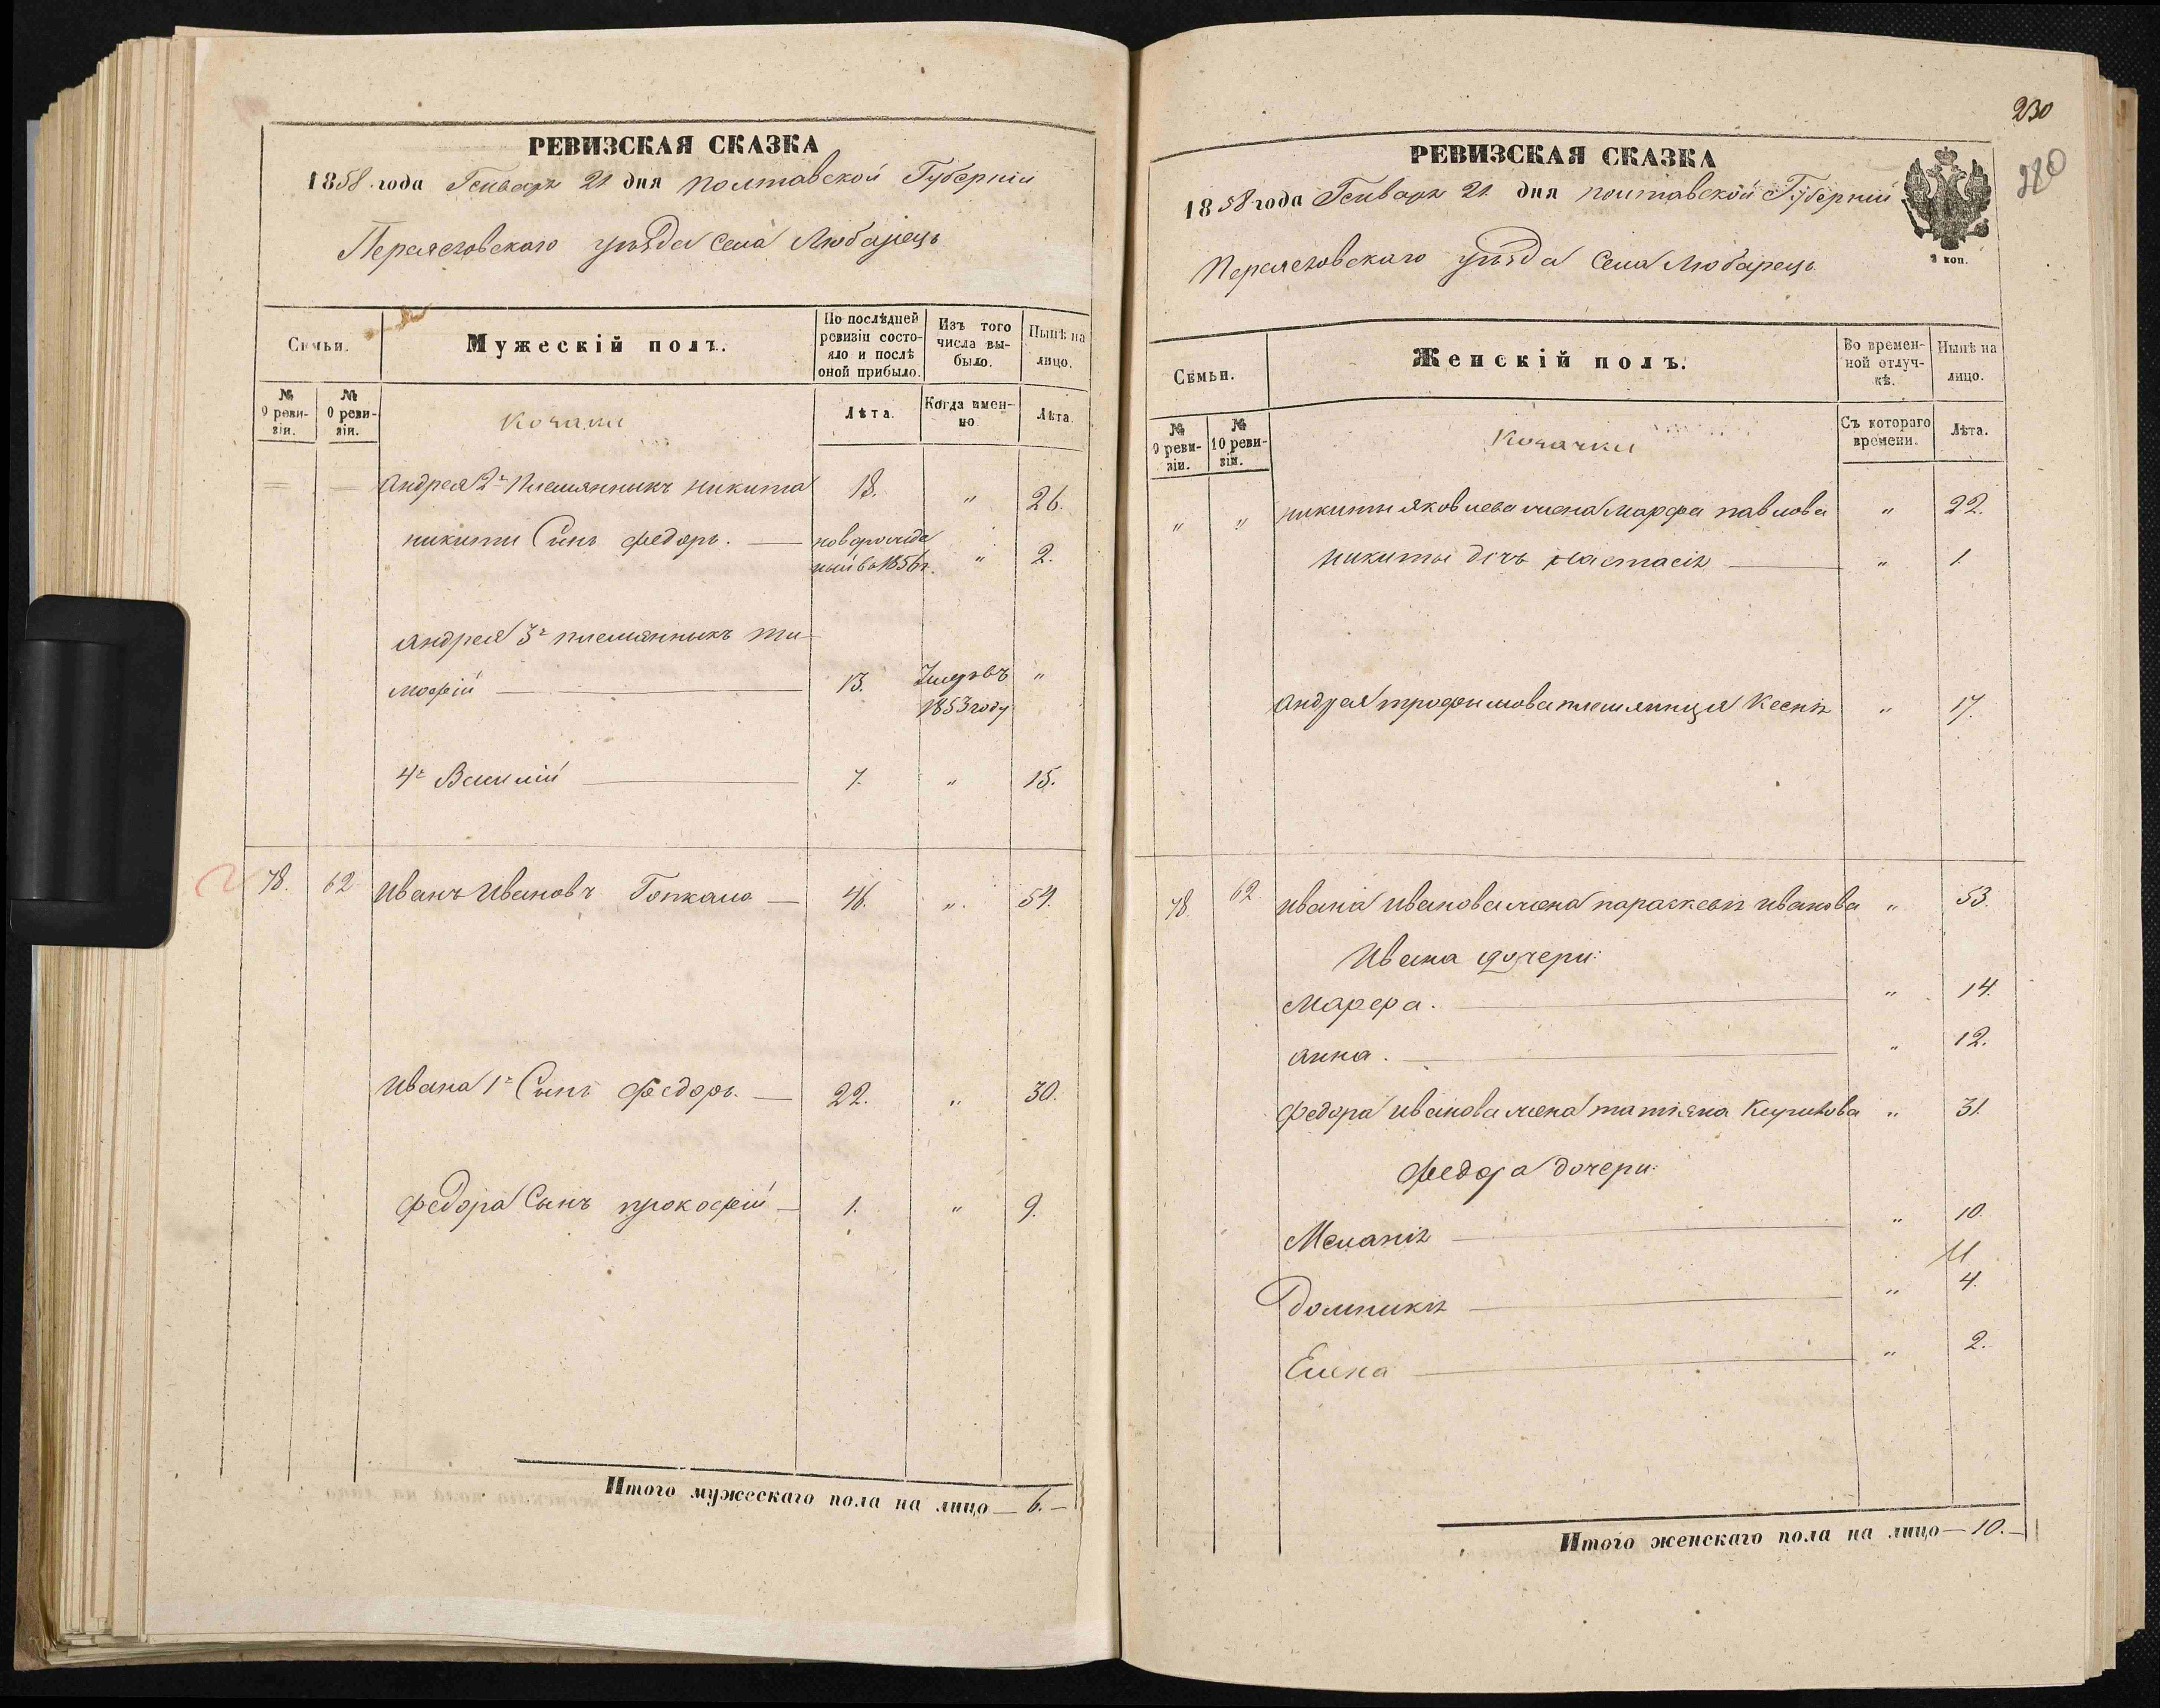 РЕВИЗСКАЯ СКАЗКА
1858 года Генваря 21 дня полтавской Губерніи
Переяславскаго уѣзда села Любарець
Семьи.
Мужескій полъ.
По послѣдней ревизіи состояло и послѣ оной прибыло.
Изъ того числа выбыло.
Нынѣ на лицо.
№ 9 ревизіи.
№ 10 ревизіи.
Козаки
Лѣта.
Когда именно
Лѣта
Андрея 2й племянникъ никита 18. " 26.
никиты Сынъ федоръ. — новорожденый въ 1856 г. " 2.
Андрея 3й племянникъ тимофій — 13. Умеръ въ 1853 году "
4й Василій — 7. " 15.
78. 62 Иванъ Ивановъ — 46. " 54.
Ивана 1й Сынъ Федоръ. — 22. " 30.
Федора Сынъ прокофій — 1. " 9.
Итого мужескаго пола на лицо — 6. —
230
РЕВИЗСКАЯ СКАЗКА
1858 года Генваря 21 дня полтавской Губерніи
Переяславскаго уѣзда Села Любарець
2 коп.
Семьи.
Женскій полъ.
Во временной отлучкѣ.
Нынѣ на лицо.
№ 9 ревизіи.
№ 10 ревизіи.
Козачки
Съ котораго времени.
Лѣта.
" " никиты яковлева жена марфа павлова " 22.
никиты дочъ настасія — " 1
Андрея трофимова племянница Ксенія " 17.
78 62 Ивана Иванова жена параскевія иванова " 53.
Ивана дочери:
Марфа. — " 14.
Анна. — " 12.
Федора иванова жена татіяна " 31.
Федора дочери:
Меланія — " 10.
Домникія — " 4.
Елена — " 2.
Итого женскаго пола на лицо — 10. —